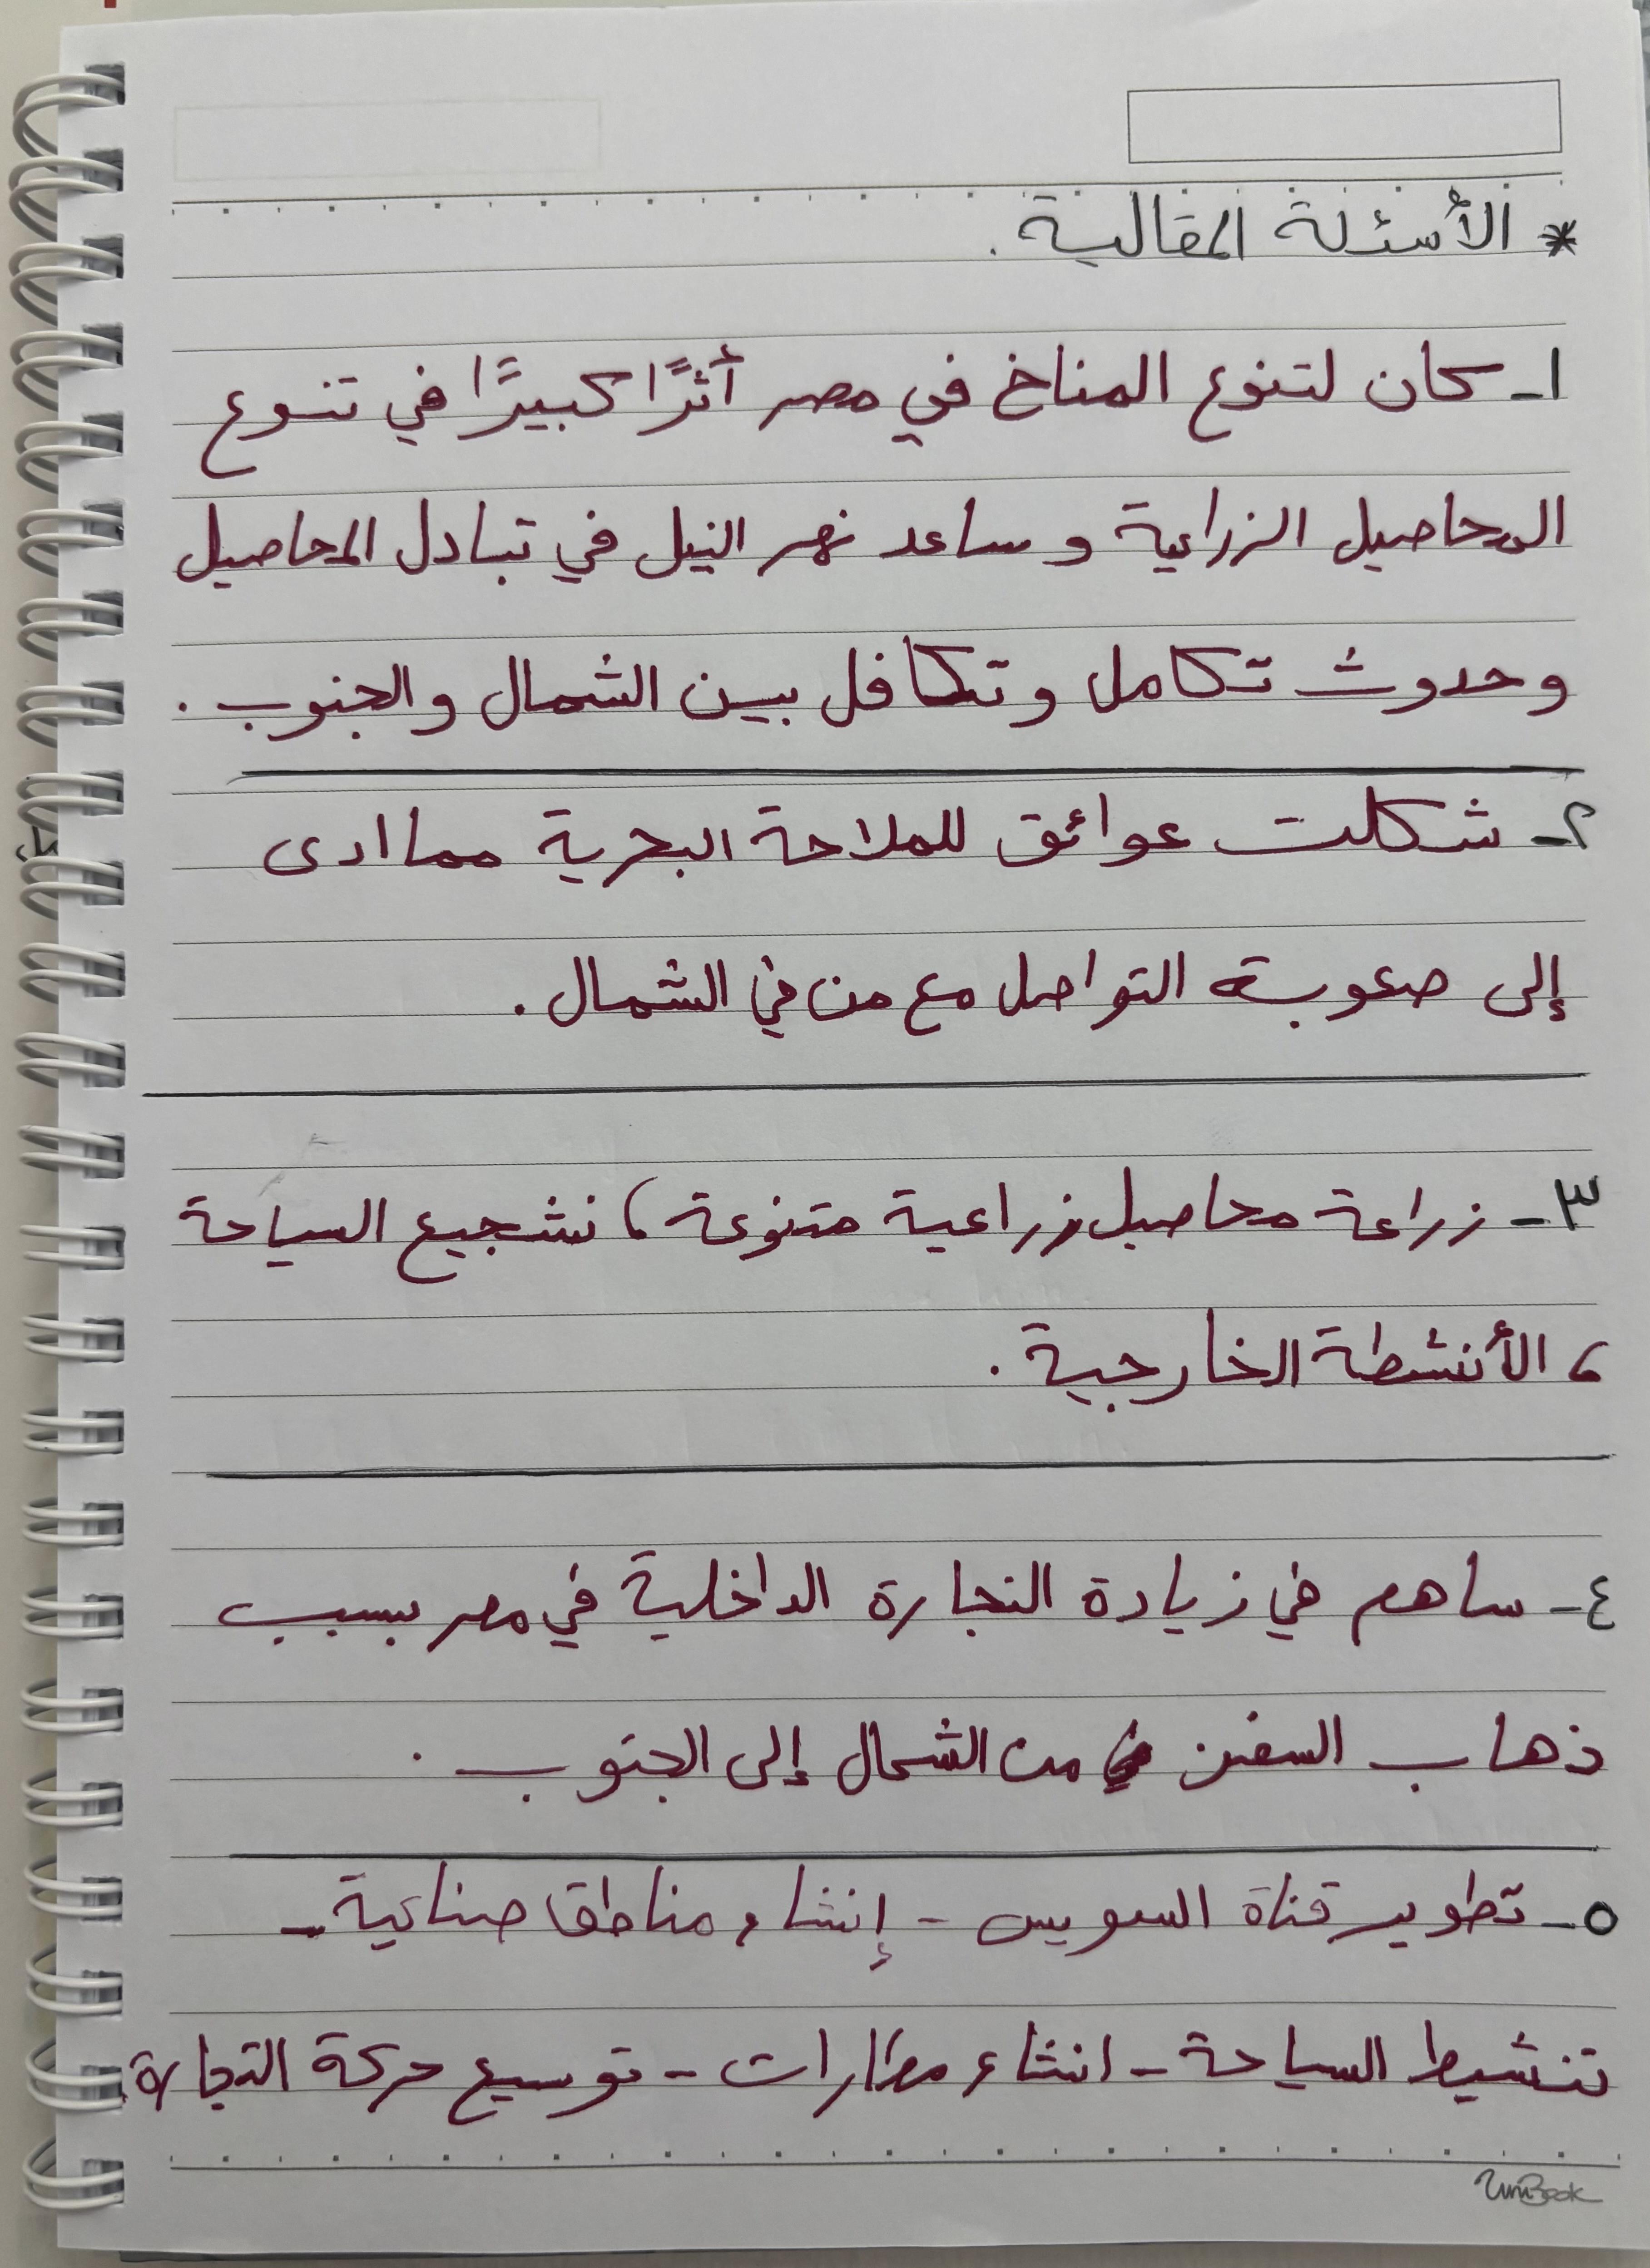 * الأسئلة المقالية .
١- كان لتنوع المناخ في مصر أثرًا كبيرًا في تنوع
المحاصيل الزراعية وساعد نهر النيل في تبادل المحاصيل
وحدوث تكامل وتكافل بين الشمال والجنوب .
٢- شكلت عوائق للملاحة البحرية مما ادى
إلى صعوبة التواصل مع من في الشمال .
٣- زراعة محاصيل زراعية متنوعة ، تشجيع السياحة
، الأنشطة الخارجية .
٤- ساهم في زيادة التجارة الداخلية في مصر بسبب
ذهاب السفن من الشمال إلى الجنوب .
٥- تطوير قناة السويس - إنشاء مناطق صناعية -
تنشيط السياحة - انشاء مطارات - توسيع حركة التجارة .
UniBook